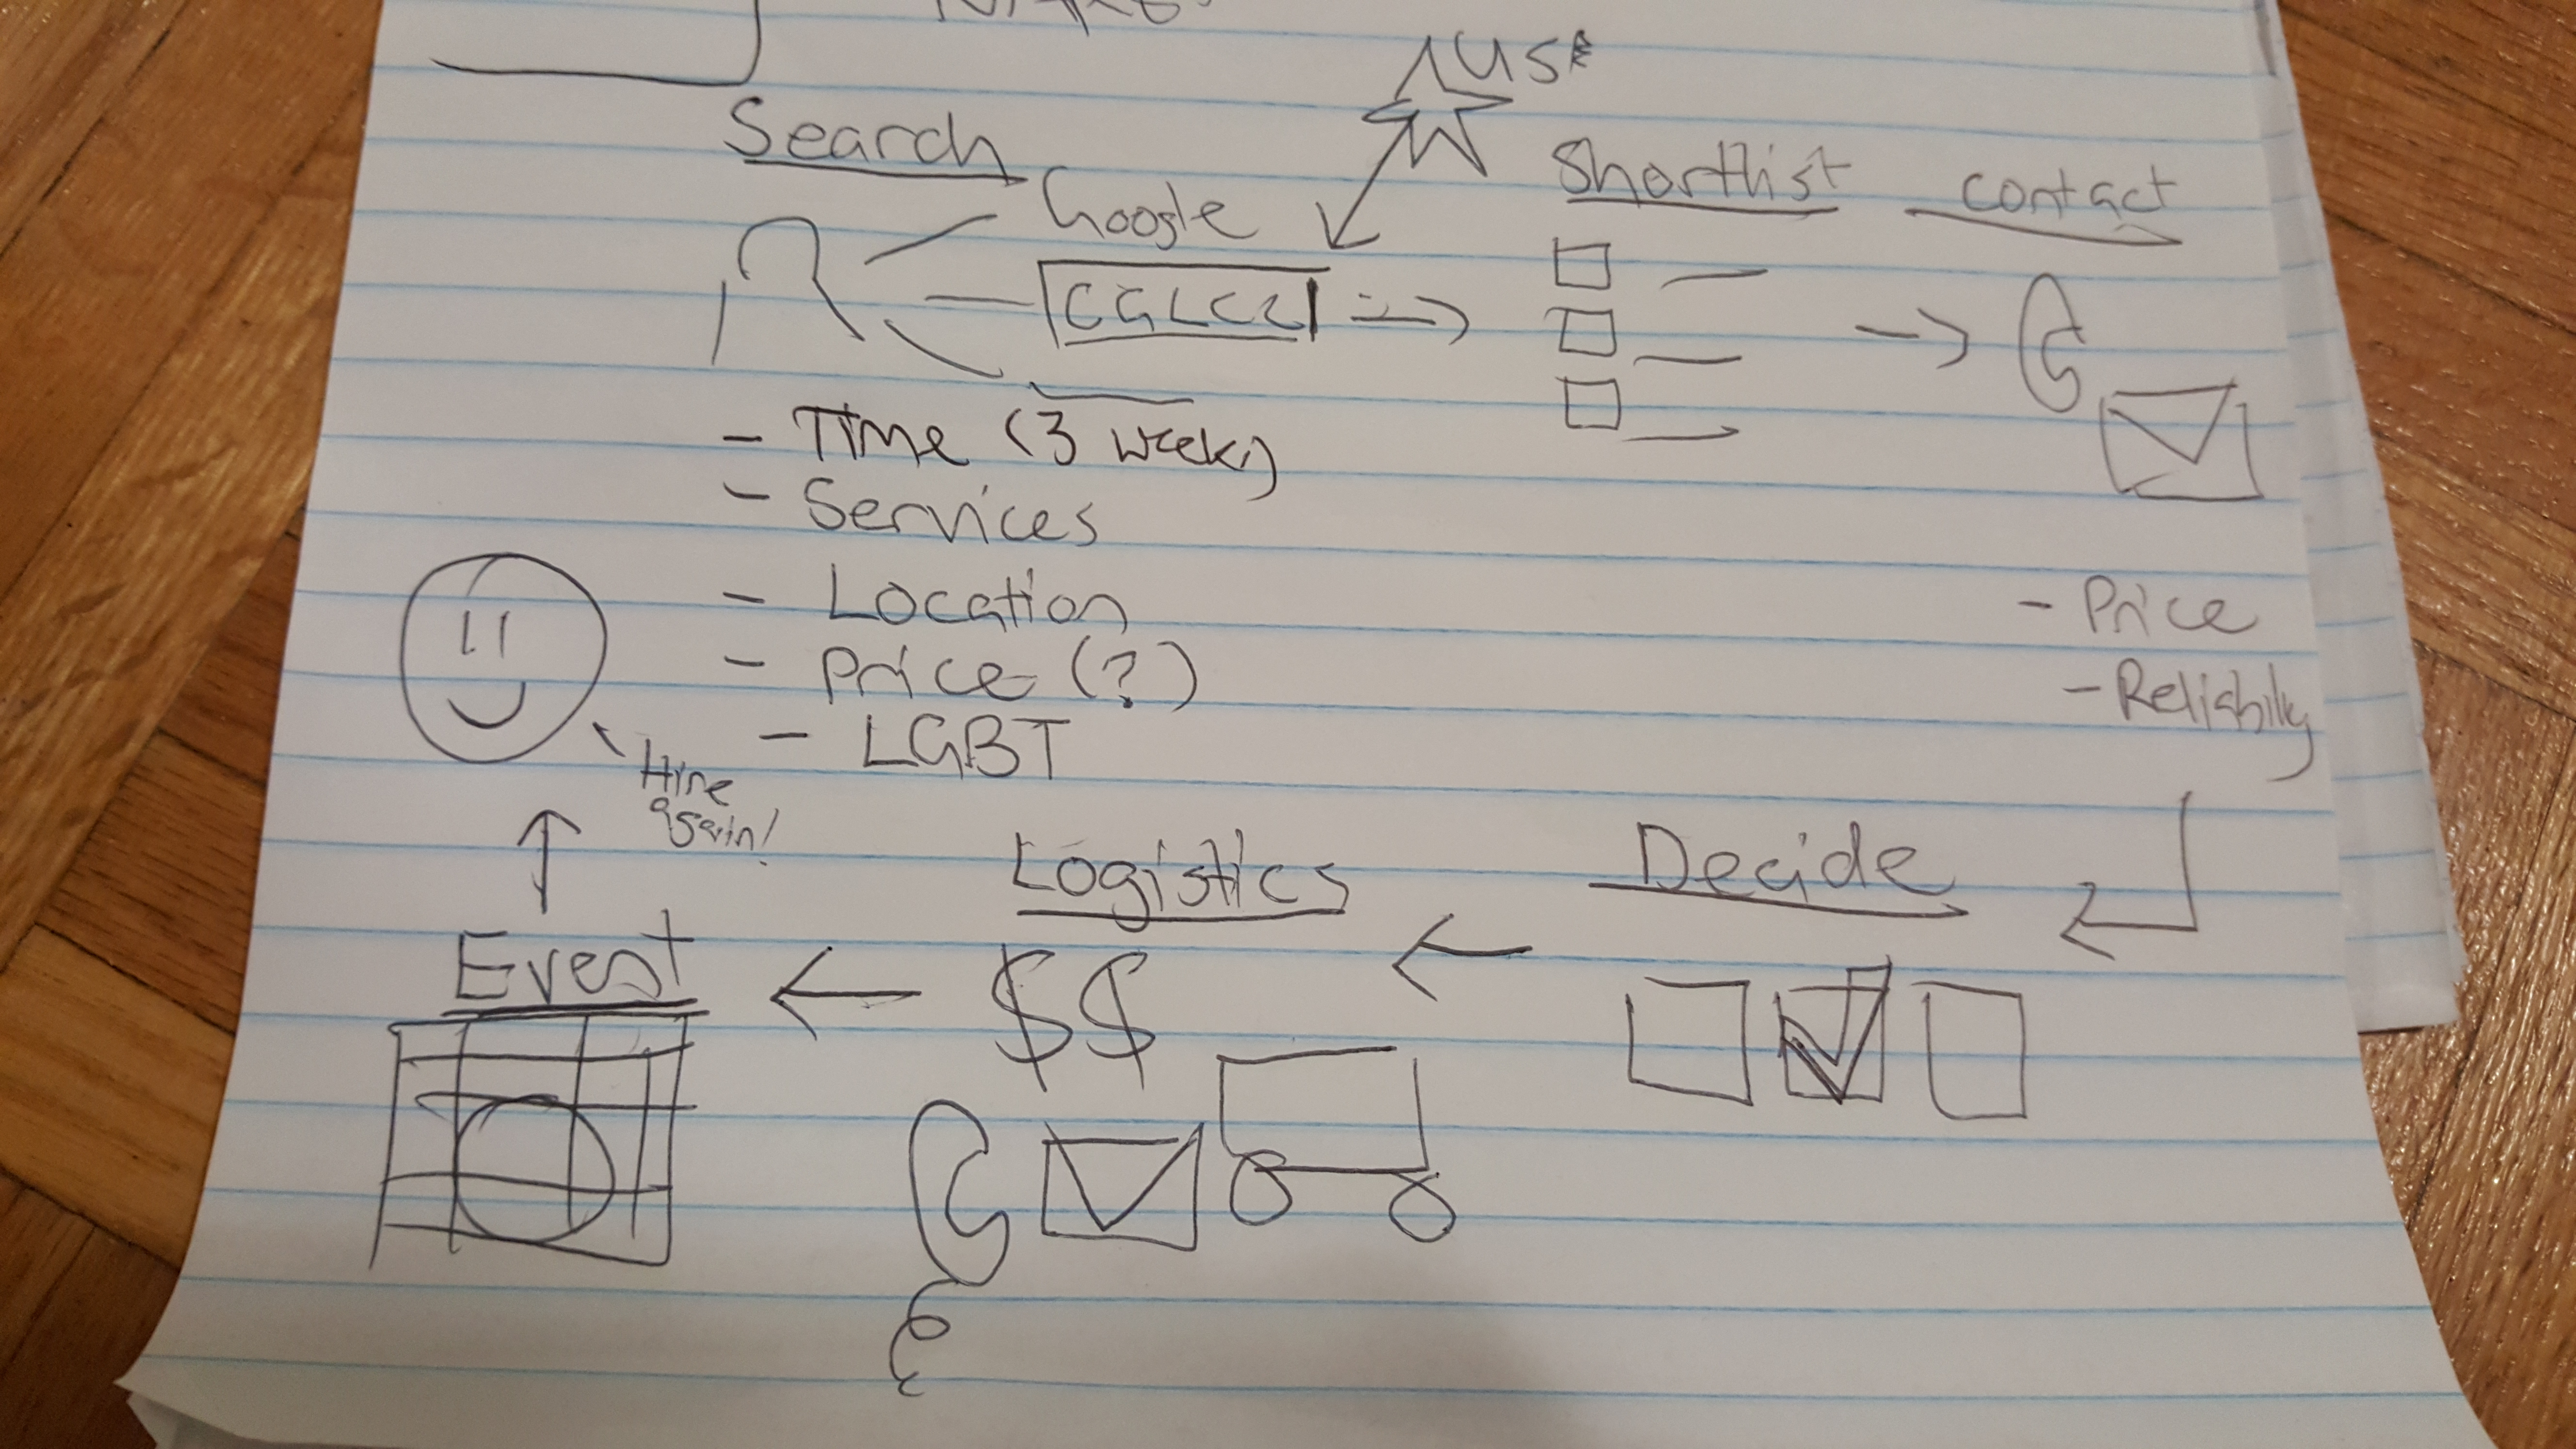 Search
USE
Google
Shortlist
contact
CGLCC
- Time (3 week)
- Services
- Location
- Price (?)
- LGBT
- Price
- Reliability
Hire
again!
Logistics
Decide
Event
$$